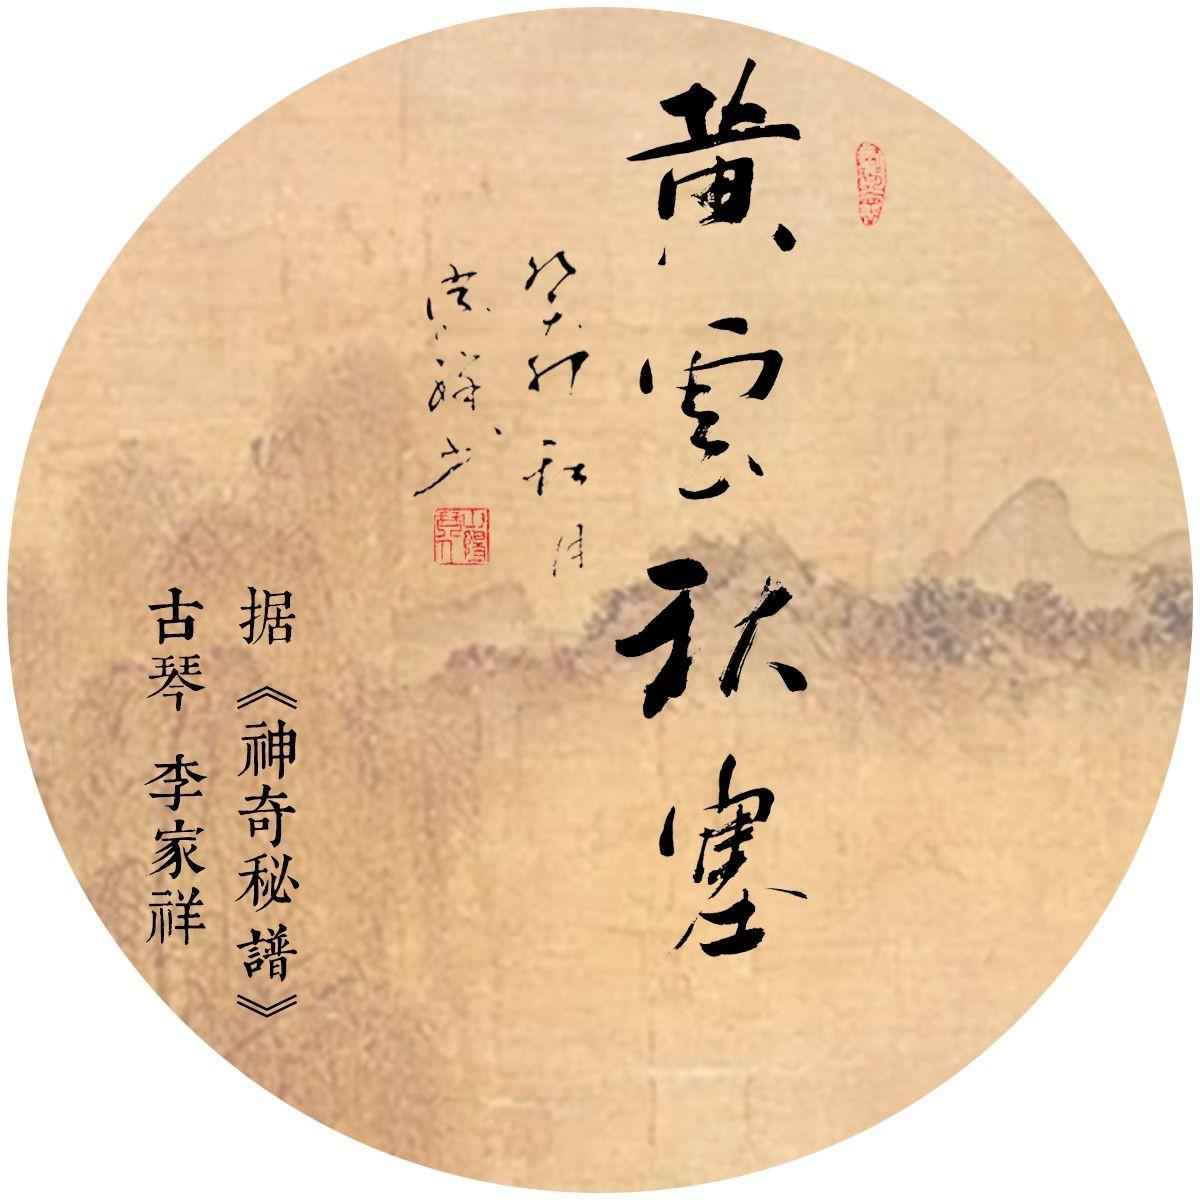 黄雲秋塞
癸卯秋月
据《神奇秘譜》
古琴 李家祥